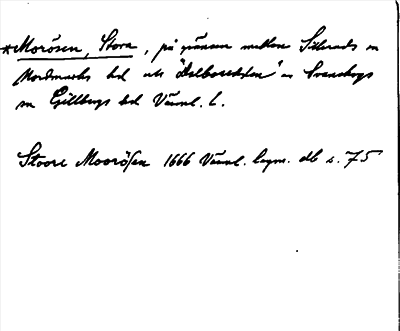 *Morösen, Stora, på gränsen mellan Silleruds sn
Nordmarks hd och "Dalbosidan" av Svanskogs
sn Gillbergs hd Värml. l.
Stoore Moorösen 1666 Värml. lagm. db s. 75